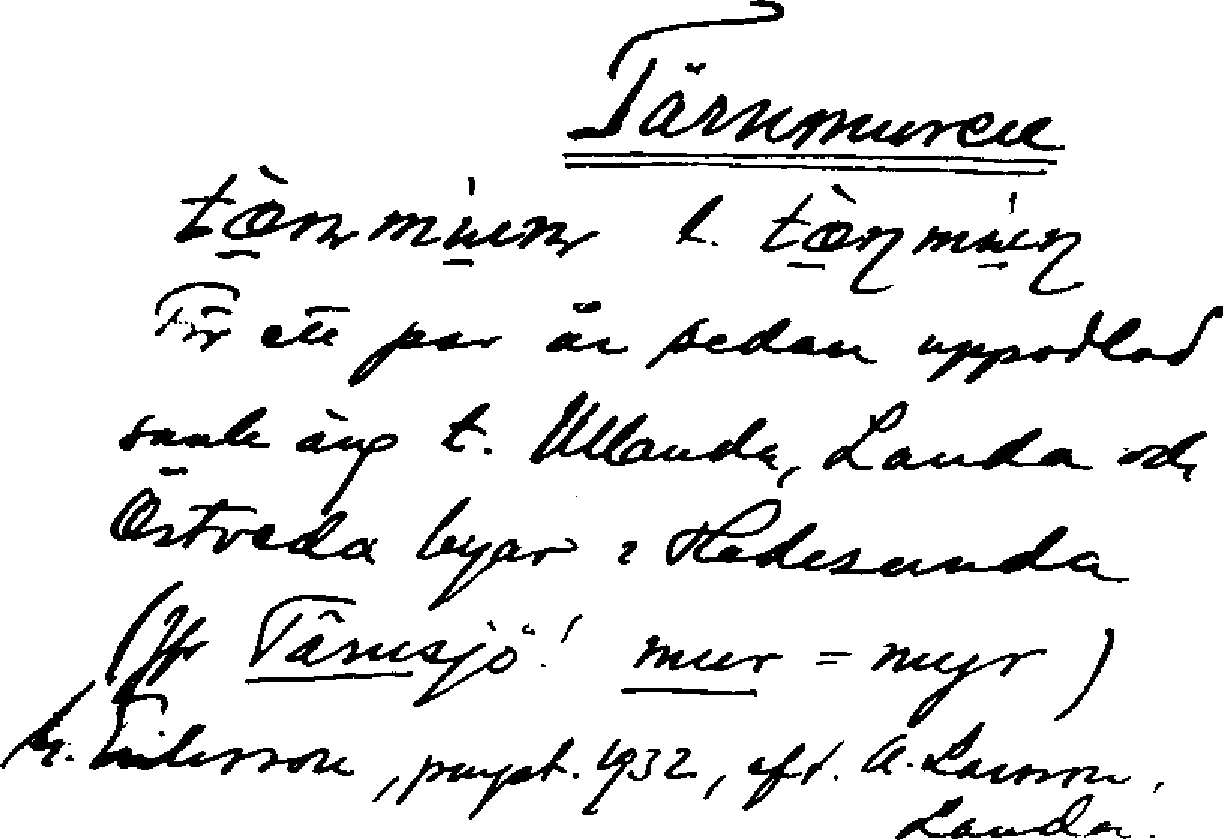 Tärnmuren
För ett par år sedan uppodlad
sank äng t. Ullanda, Landa och
Östveda byar i Hedesunda
(Jfr Tärnsjö! mur = myr)
Eriksson, 1932, eft. A. Larsson,
Landa.